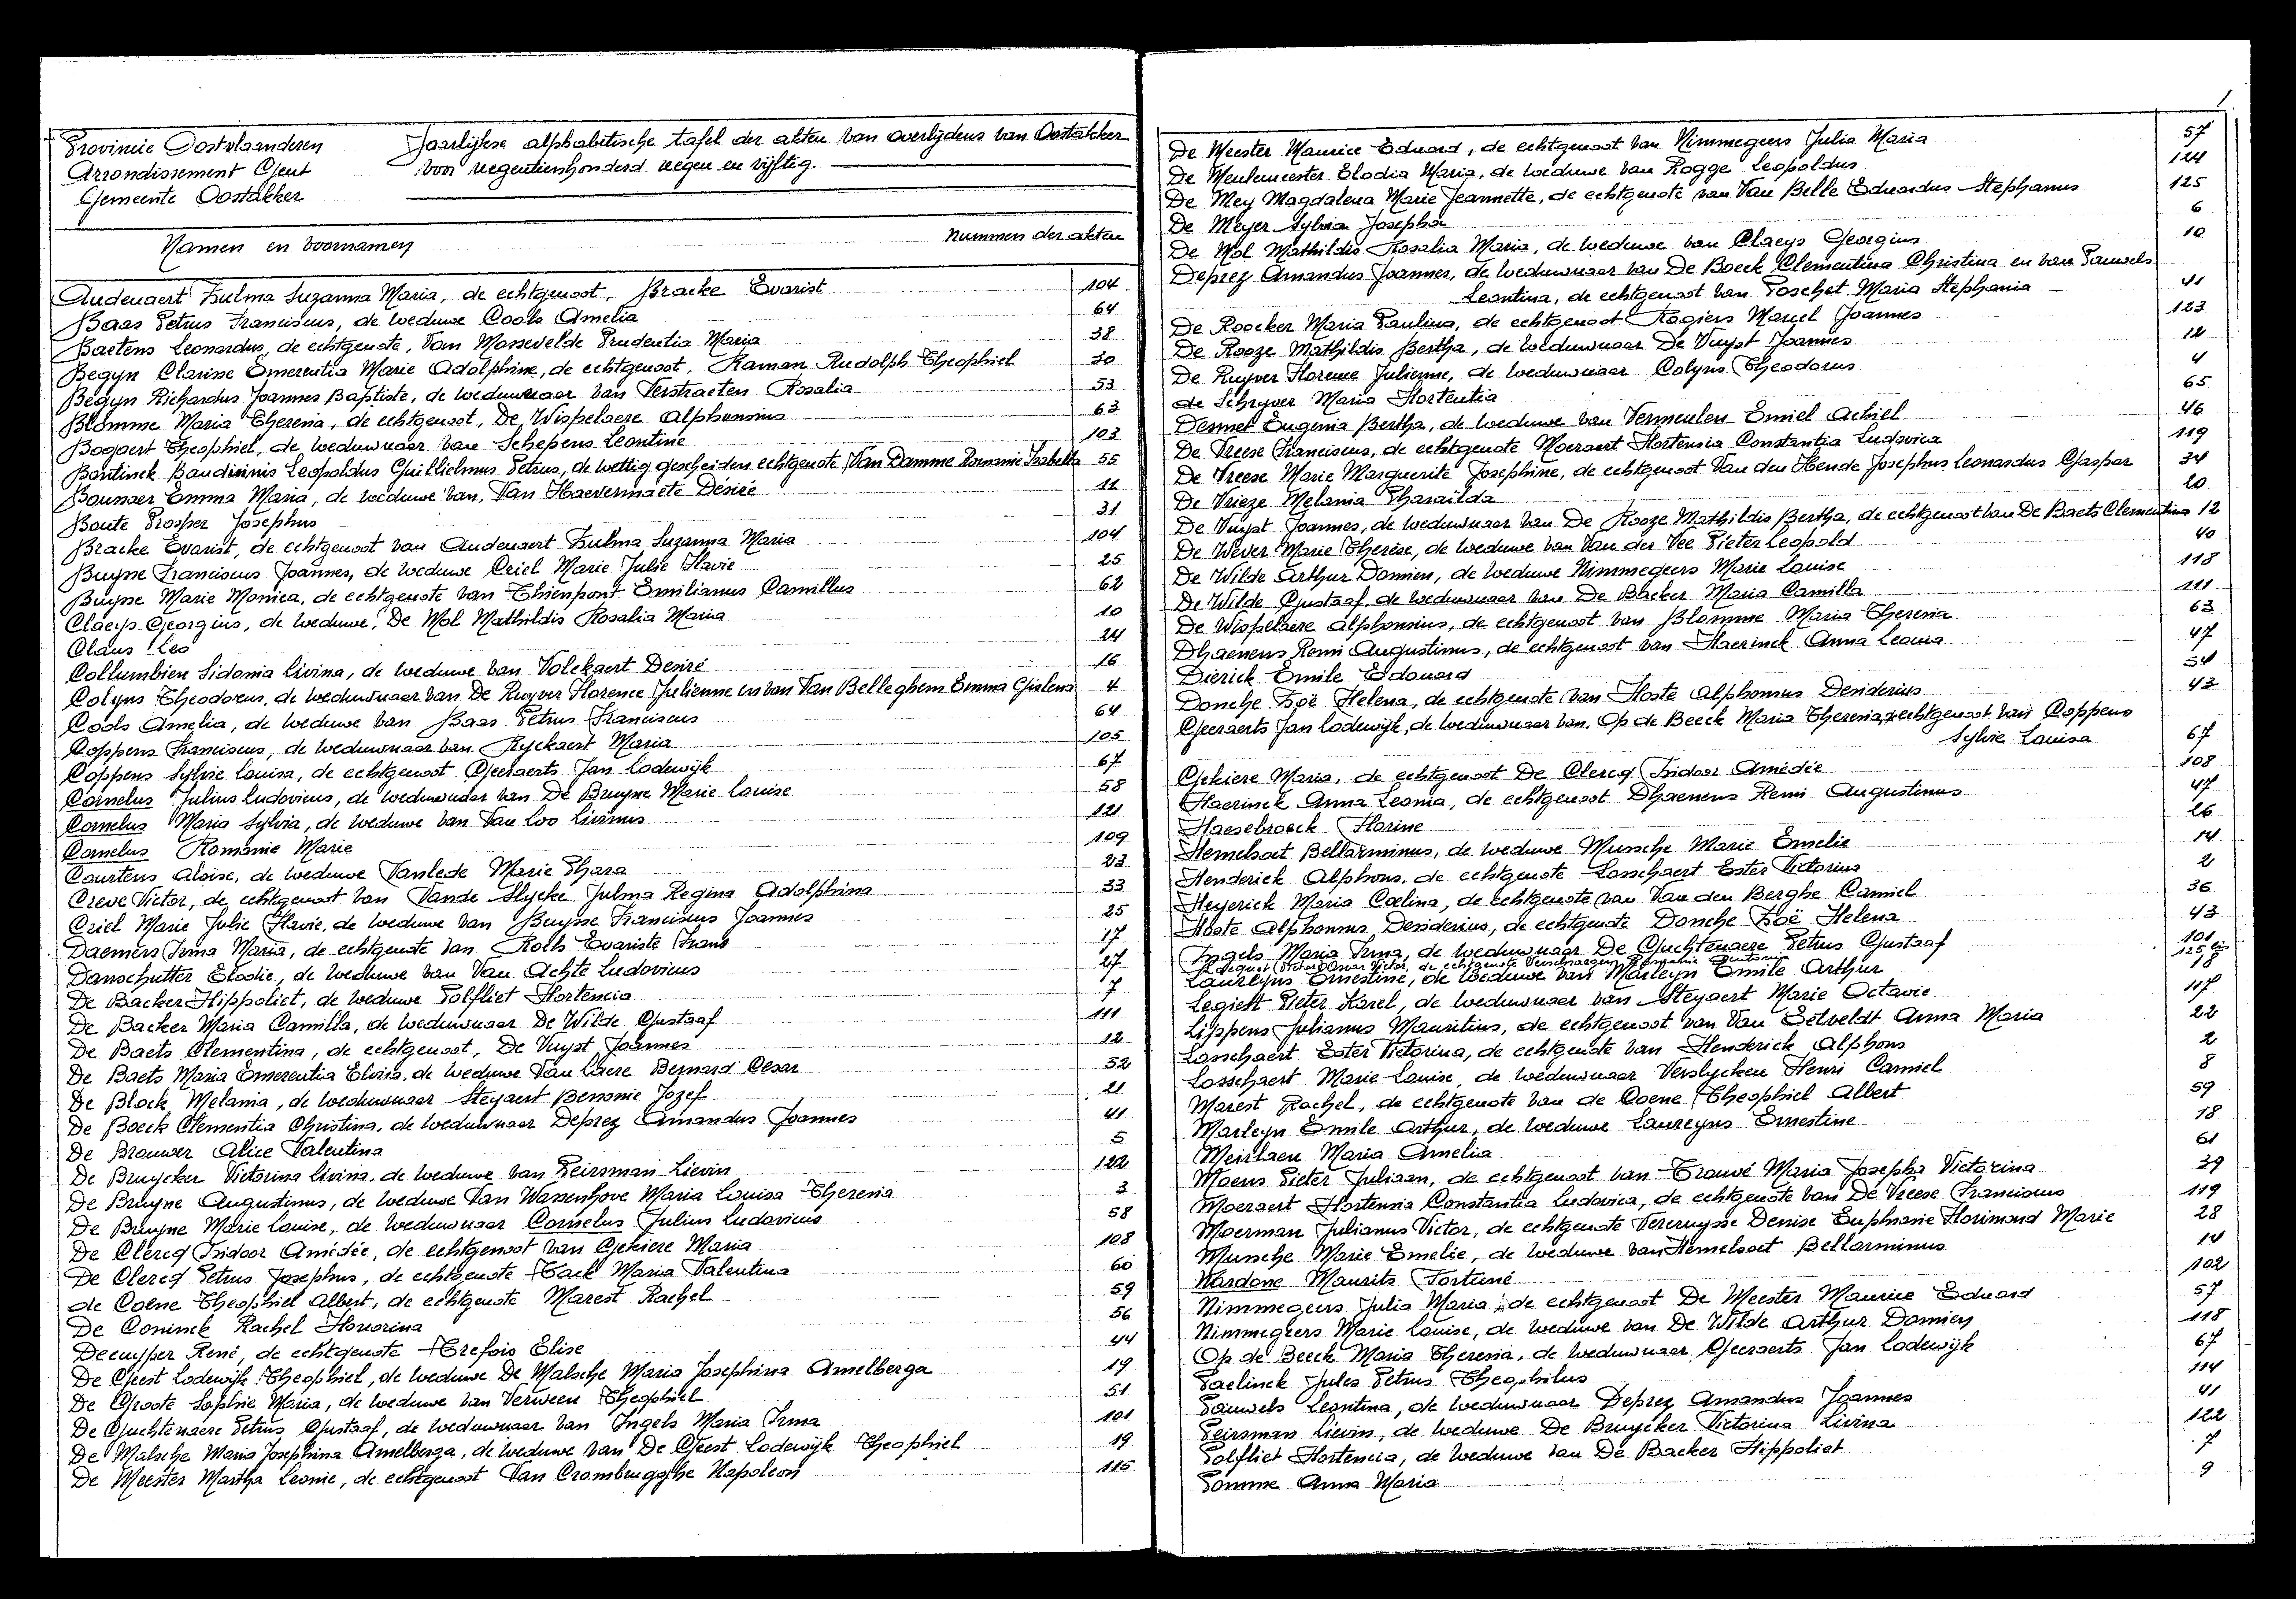 Provincie Oostvlaanderen
Arrondissement Gent
Gemeente Oostakker
Jaarlijkse alphabetische tafel der akten van overlijdens van Oostakker
voor negentienhonderd negen en vijftig.
Namen en voornamen
Nummers der akten
Audenaert Zulma Suzanna Maria, de echtgenoot, Bracke Evarist 104
Baas Petrus Franciscus, de weduwe Cools Amelia 64
Baetens Leonardus, de echtgenote, Van Massevelde Prudentia Maria 38
Begyn Clarisse Emerentia Marie Adolphine, de echtgenoot, Raman Rudolph Theophiel 30
Begyn Richardus Joannes Baptiste, de weduwnaar van Verstraeten Rosalia 53
Blomme Maria Theresia, de echtgenoot, De Wispelaere Alphonsius 63
Bogaert Theophiel, de weduwnaar van Schepens Leontine 103
Bontinck Baudiwinis Leopoldus Guillielmus Petrus, de wettig gescheiden echtgenote Van Damme Romanie Isabella 55
Bounaer Emma Maria, de weduwe van, Van Haevermaete Désiré 11
Boute Prosper Josephus 31
Bracke Evarist, de echtgenoot van Audenaert Zulma Suzanna Maria 104
Buysse Franciscus Joannes, de weduwe Criel Marie Julie Flavie 25
Buysse Marie Monica, de echtgenote van Thienpont Emilianus Camillus 62
Claeys Georgius, de weduwe, De Mol Mathildis Rosalia Maria 10
Claus Leo 24
Collumbien Sidonia Livina, de weduwe van Volckaert Desiré 16
Colyns Theodorus, de weduwnaar van De Ruyver Florence Julienne en van Van Belleghem Emma Gislena 4
Cools Amelia, de weduwe van Baas Petrus Franciscus 64
Coppens Franciscus, de weduwnaar van Ryckaert Maria 105
Coppens Sylvie Louisa, de echtgenoot Geeraerts Jan Lodewijk 67
Cornelus Julius Ludovicus, de weduwnaar van De Bruyne Marie Louise 58
Cornelus Maria Sylvia, de weduwe van Van Loo Livinus 121
Cornelus Romanie Marie 109
Courtens Aloise, de weduwe Vanlede Marie Phara 23
Creve Victor, de echtgenoot van Vande Slycke Julma Regina Adolphina 33
Criel Marie Julie Flavie, de weduwe van Buysse Franciscus Joannes 25
Daemers Irma Maria, de echtgenote van Rolls Evariste Frans 17
Danschutter Elodie, de weduwe van Van Achte Ludovicus 27
De Backer Hippoliet, de weduwe Polfliet Hortencia 7
De Backer Maria Camilla, de weduwnaar De Wilde Gustaaf 111
De Baets Clementina, de echtgenoot, De Vuyst Joannes 12
De Baets Maria Emerentia Elvira, de weduwe Van Laere Bernard Cesar 52
De Block Melania, de weduwnaar Steyaert Benonie Jozef 21
De Boeck Clementia Christina, de weduwnaar Deprez Amandus Joannes 41
De Brouwer Alice Valentina 5
De Bruycker Victorina Livina, de weduwe van Peirsman Lievin 122
De Bruyne Augustinus, de weduwe Van Wassenhove Maria Louisa Theresia 3
De Bruyne Marie Louise, de weduwnaar Cornelus Julius Ludovicus 58
De Clercq Isidoor Amédée, de echtgenoot van Gekiere Maria 108
De Clercq Petrus Josephus, de echtgenote Tack Maria Valentina 60
de Coene Theophiel Albert, de echtgenote Marest Rachel 59
De Coninck Rachel Honorina 56
Decuyper René, de echtgenote Trefois Elise 44
De Geest Lodewijk Theophiel, de weduwe De Malsche Maria Josephina Amelberga 19
De Groote Sophie Maria, de weduwe van Verween Theophiel 51
De Guchtenaere Petrus Gustaaf, de weduwnaar van Ingels Maria Irma 101
De Malsche Maria Josephina Amelberga, de weduwe van De Geest Lodewijk Theophiel 19
De Meester Martha Leonie, de echtgenoot Van Crombrugghe Napoleon 115
1
De Meester Maurice Eduard, de echtgenoot van Nimmegeers Julia Maria 57
De Meulemeester Elodia Maria, de weduwe van Rogge Leopoldus 124
De Mey Magdalena Marie Jeannette, de echtgenote van Van Belle Eduardus Stephanus 125
De Meyer Sylvia Josepha 6
De Mol Mathildis Rosalia Maria, de weduwe van Claeys Georgius 10
Deprez Amandus Joannes, de weduwnaar van De Boeck Clementina Christina en van Pauwels
Leontina, de echtgenoot van Poschet Maria Stephania 41
De Roocker Maria Paulina, de echtgenoot Rogiers Marcel Joannes 123
De Rooze Mathildis Bertha, de weduwnaar De Vuyst Joannes 12
De Ruyver Florence Julienne, de weduwnaar Colyns Theodorus 4
de Schryver Maria Hortentia 65
Desmet Eugenia Bertha, de weduwe van Vermeulen Emiel Achiel 46
De Vreese Franciscus, de echtgenote Moeraert Hortensia Constantia Ludovica 119
De Vreese Marie Marguerite Josephine, de echtgenoot Van den Hende Josephus Leonardus Gaspar 34
De Vrieze Melania Pharaïlda 20
De Vuyst Joannes, de weduwnaar van De Rooze Mathildis Bertha, de echtgenoot van De Baets Clementina 12
De Wever Marie Therèse, de weduwe van Van der Vee Pieter Leopold 40
De Wilde Arthur Damien, de weduwe Nimmegeers Marie Louise 118
De Wilde Gustaaf, de weduwnaar van De Backer Maria Camilla 111
De Wispelaere Alphonsius, de echtgenoot van Blomme Maria Theresia 63
Dhaenens Remi Augustinus, de echtgenoot van Haerinck Anna Leonia 47
Dierick Emile Edouard 54
Donche Zoë Helena, de echtgenote van Hoste Alphonsus Desiderius 43
Geeraerts Jan Lodewijk, de weduwnaar van, Op de Beeck Maria Theresia, echtgenoot van Coppens
Sylvie Louisa 67
Gekiere Maria, de echtgenoot De Clercq Isidoor Amédée 108
Haerinck Anna Leonia, de echtgenoot Dhaenens Remi Augustinus 47
Haesebroeck Florine 26
Hemelsoet Bellarminus, de weduwe Mussche Marie Emelie 14
Henderick Alphons, de echtgenote Losschaert Ester Victorina 2
Heyerick Maria Coelina, de echtgenote van Van den Berghe Camiel 36
Hoste Alphonsus Desiderius, de echtgenote Donche Zoë Helena 43
Ingels Maria Irma, de weduwnaar De Guchtenaere Petrus Gustaaf 101
Omer Victor, de echtgenote Romanie 125 bis
Laureyns Ernestine, de weduwe van Marleyn Emile Arthur 18
Legiest Pieter Karel, de weduwnaar van Steyaert Marie Octavie 117
Lippens Julianus Mauritius, de echtgenoot van Van Eetveldt Anna Maria 22
Losschaert Ester Victorina, de echtgenote van Henderick Alphons 2
Losschaert Marie Louise, de weduwnaar Verslycken Henri Camiel 8
Marest Rachel, de echtgenote van de Coene Theophiel Albert 59
Marleyn Emile Arthur, de weduwe Laureyns Ernestine 18
Meirlaen Maria Amelia 61
Moens Pieter Juliaan, de echtgenoot van Trouvé Maria Josepha Victorina 39
Moeraert Hortensia Constantia Ludovica, de echtgenote van De Vreese Franciscus 119
Moerman Julianus Victor, de echtgenote Vercruysse Denise Euphranie Florimond Marie 28
Mussche Marie Emelie, de weduwe van Hemelsoet Bellarminus 14
Nardone Maurits Fortuné 102
Nimmegeers Julia Maria, de echtgenoot De Meester Maurice Eduard 57
Nimmegeers Marie Louise, de weduwe van De Wilde Arthur Damien 118
Op de Beeck Maria Theresia, de weduwnaar Geeraerts Jan Lodewijk 67
Paelinck Jules Petrus Theophilus 114
Pauwels Leontina, de weduwnaar Deprez Amandus Joannes 41
Peirsman Lievin, de weduwe De Bruycker Victorina Livina 122
Polfliet Hortencia, de weduwe van De Backer Hippoliet 7
Pomme Anna Maria 9